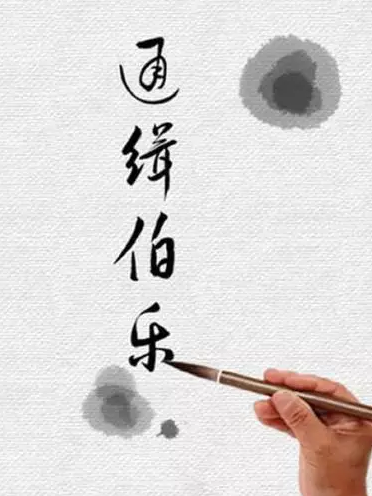 通缉伯乐